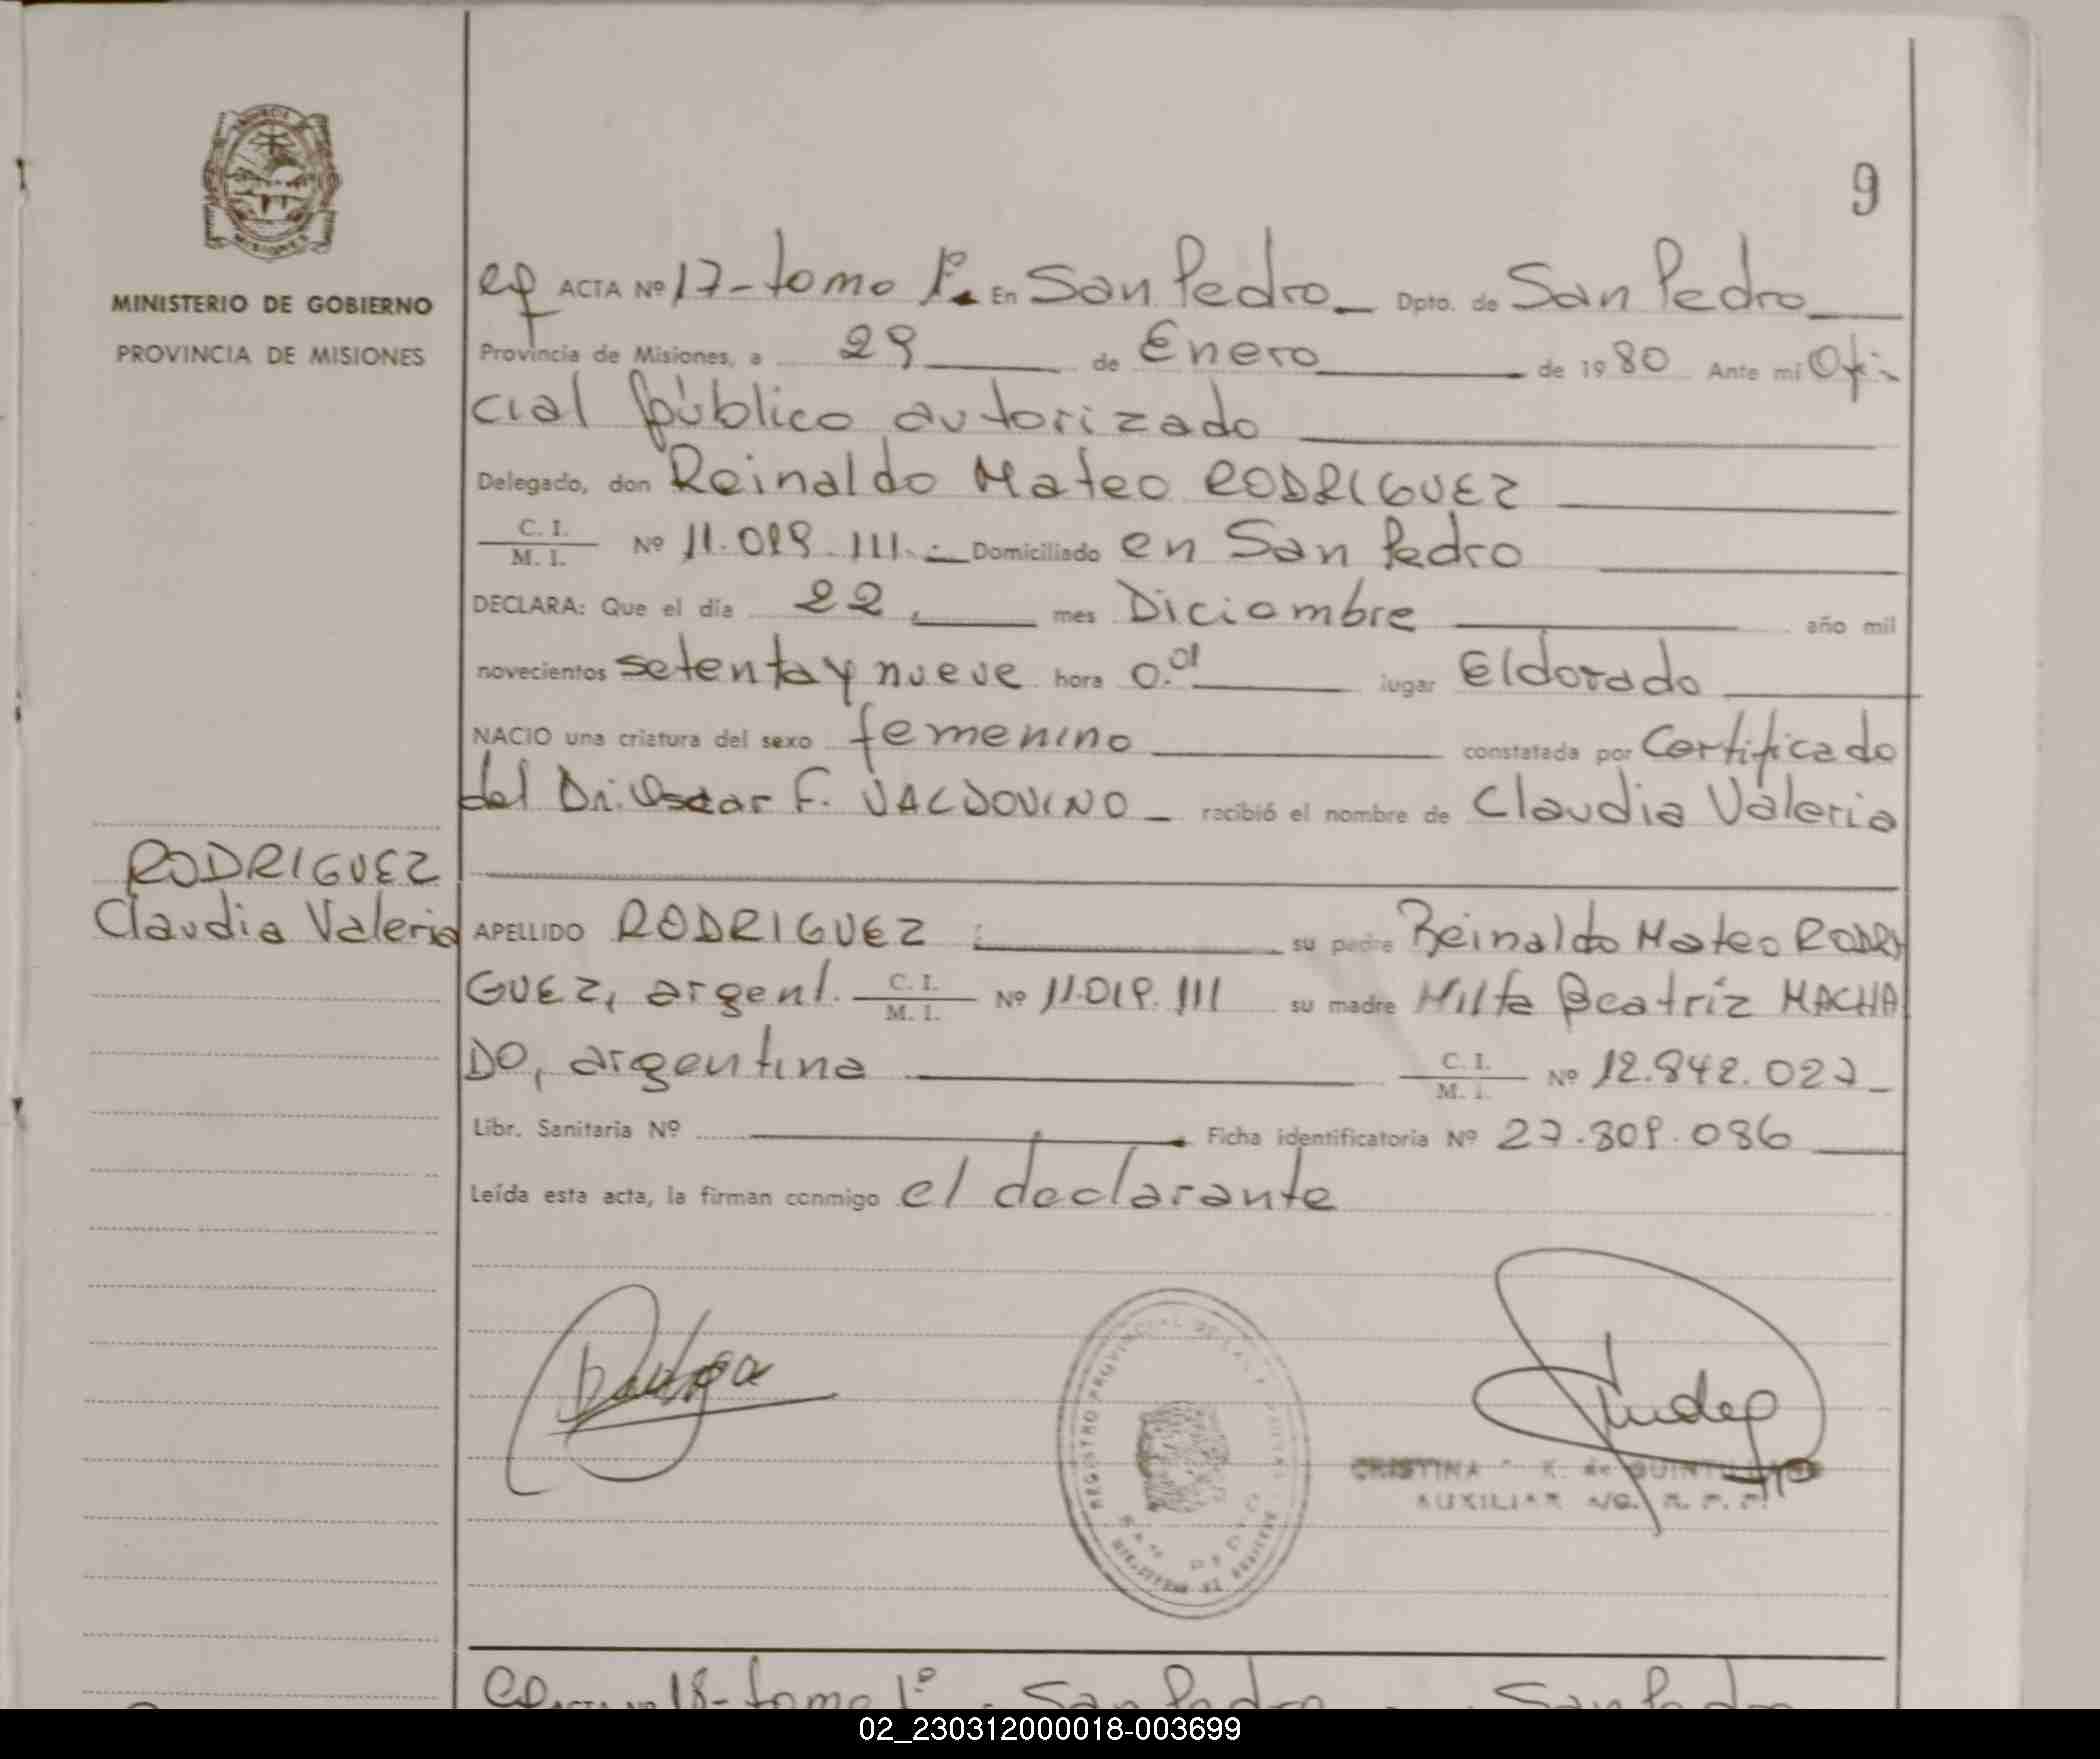 9
MINISTERIO DE GOBIERNO
PROVINCIA DE MISIONES
ACTA Nº 17 - tomo 1º. En San Pedro Dpto. de San Pedro
Provincia de Misiones, a 29 de Enero de 1980 Ante mi Ofi-
cial público autorizado
Delegado, don Reinaldo Mateo RODRIGUEZ
C. I.
M. I. Nº 11.019.111.- Domiciliado en San Pedro
DECLARA: Que el día 22 mes Diciembre año mil
novecientos setenta y nueve hora 0.01 lugar Eldorado
NACIO una criatura del sexo femenino constatada por Certificado
del Dr. Oscar F. VALDOVINO recibió el nombre de Claudia Valeria
RODRIGUEZ
Claudia Valeria
APELLIDO RODRIGUEZ su padre Reinaldo Mateo RODRI
GUEZ, argent. C. I. M. I. Nº 11.019.111 su madre Beatríz MACHA
DO, argentina C. I. M. I. Nº 12.842.027
Libr. Sanitaria Nº Ficha identificatoria Nº 27.809.086
Leída esta acta, la firman conmigo el declarante
REGISTRO PROVINCIAL DE LAS
SAN PEDRO
CRISTINA K. de
AUXILIAR A/C. R. P. P.
18 - tomo 1º San Pedro San Pedro
02_230312000018-003699